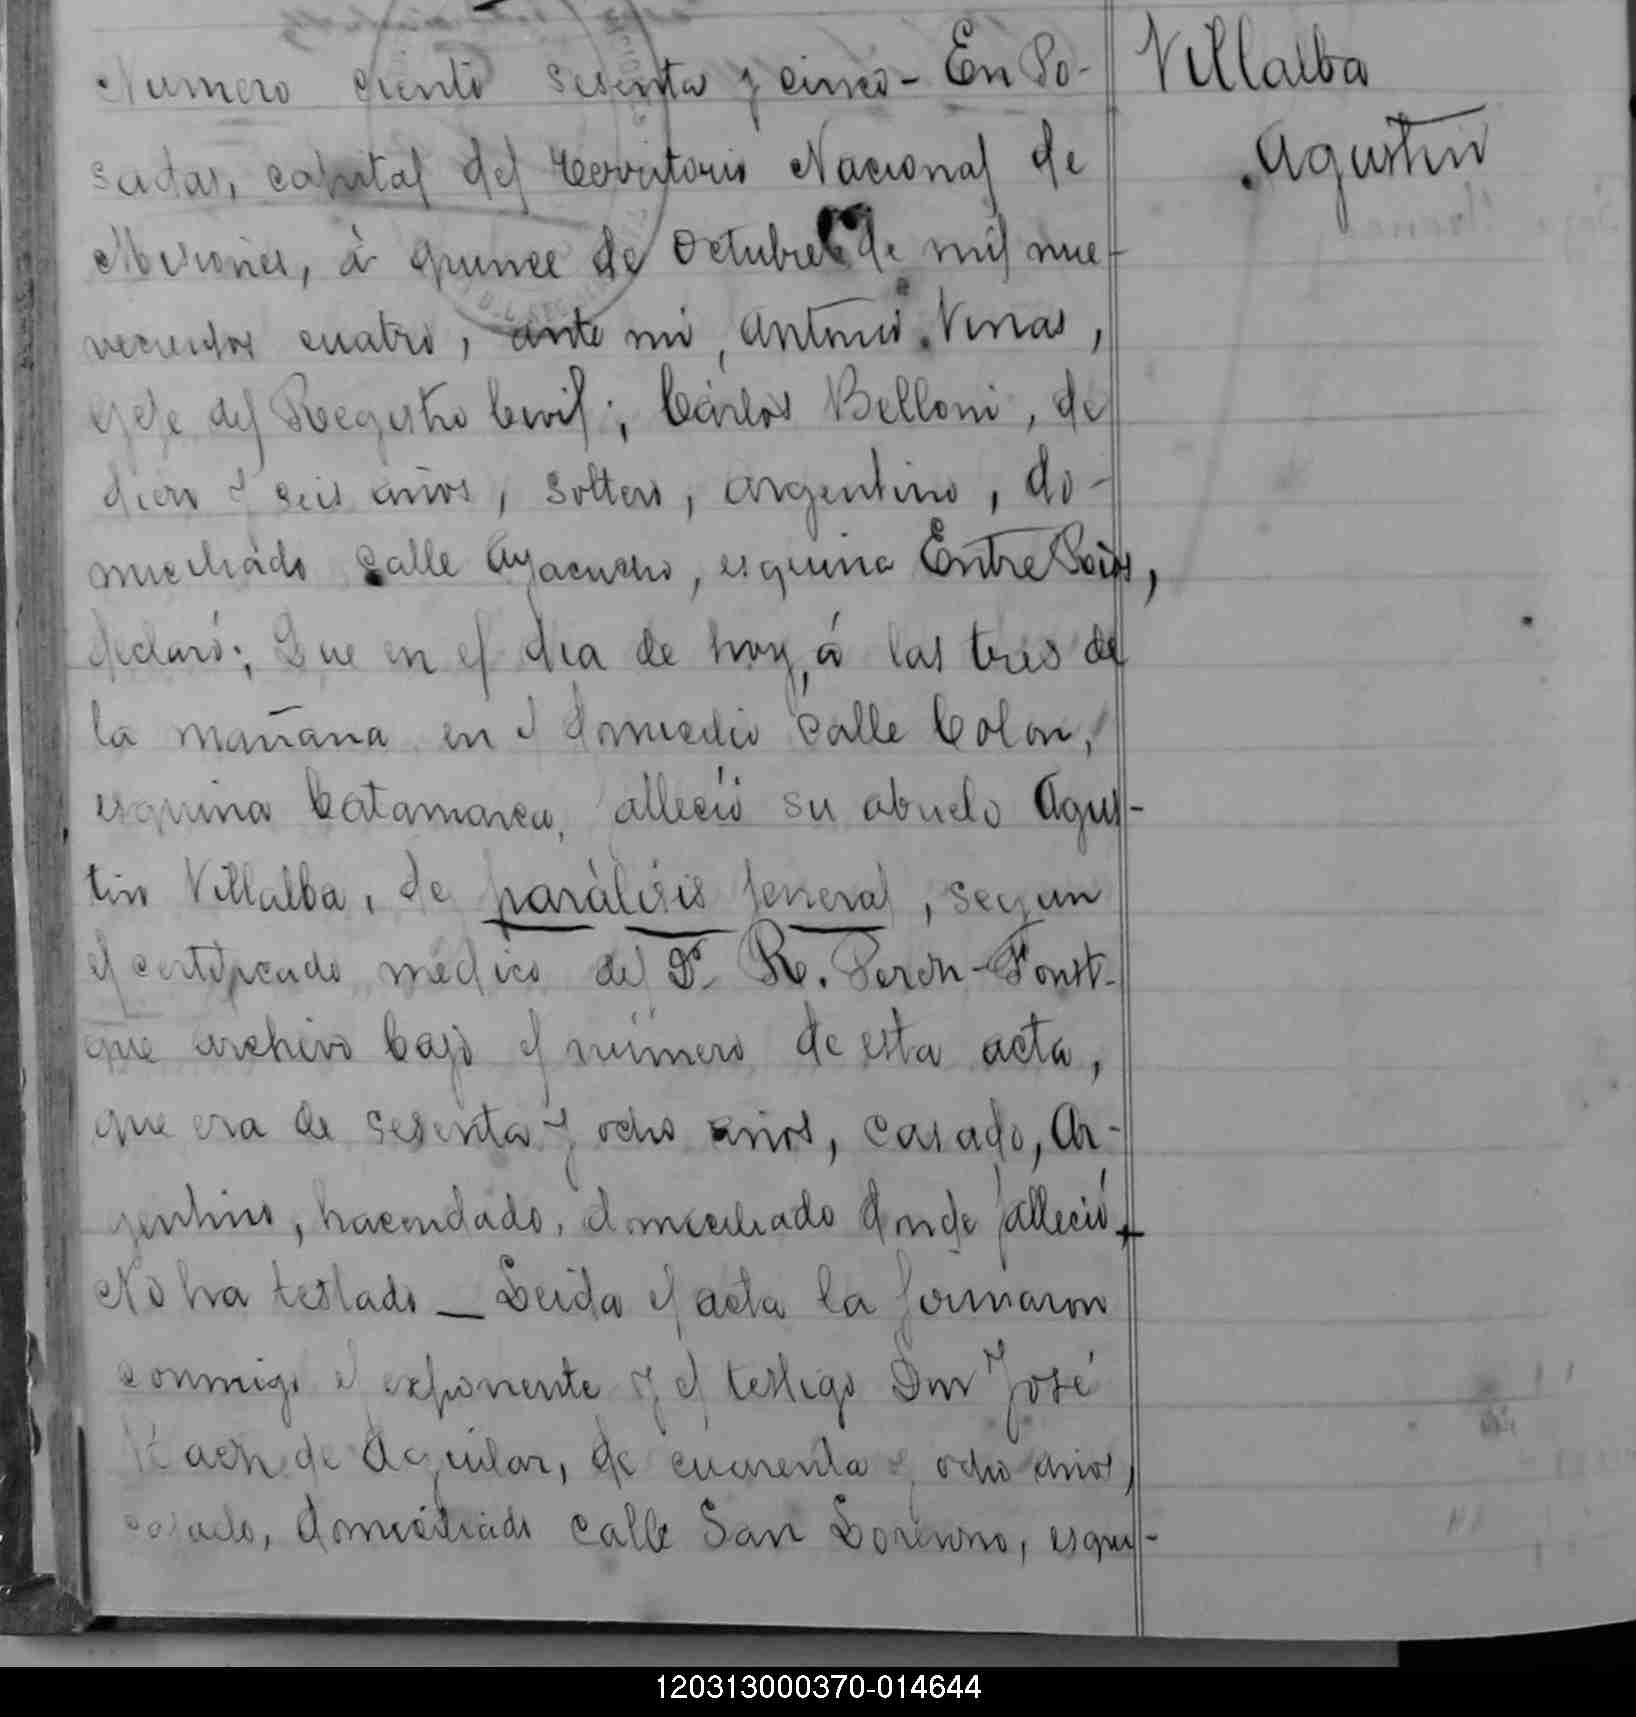 Numero ciento sesenta y cinco - En Po-
sadas, capital del territorio Nacional de
Misiones, á quince de Octubre de mil nue-
vecientos cuatro, ante mi, Antonio Vinas,
gefe del Registro Civil; Cárlos Belloni, de
diez y seis años, soltero, argentino, do-
miciliado calle Ayacucho, esquina Entre Rios,
declaró; Que en el dia de hoy, á las tres de
la mañana en el domicilio calle Colon,
esquina Catamarca, falleció su abuelo Agus-
tin Villalba, de parálisis general, segun
el certificado médico del Dr R. Perón-Foust-
que archivo bajo el número de esta acta,
que era de sesenta y ocho años, casado, Ar-
gentino, hacendado, domiciliado donde falleció,
No ha testado _ Leida el acta la firmaron
conmigo el exponente y el testigo Don José
de Aguilar, de cuarenta y ocho años,
casado, domiciliado calle San Lorenzo, esqui-
Villalba
Agustin
120313000370-014644